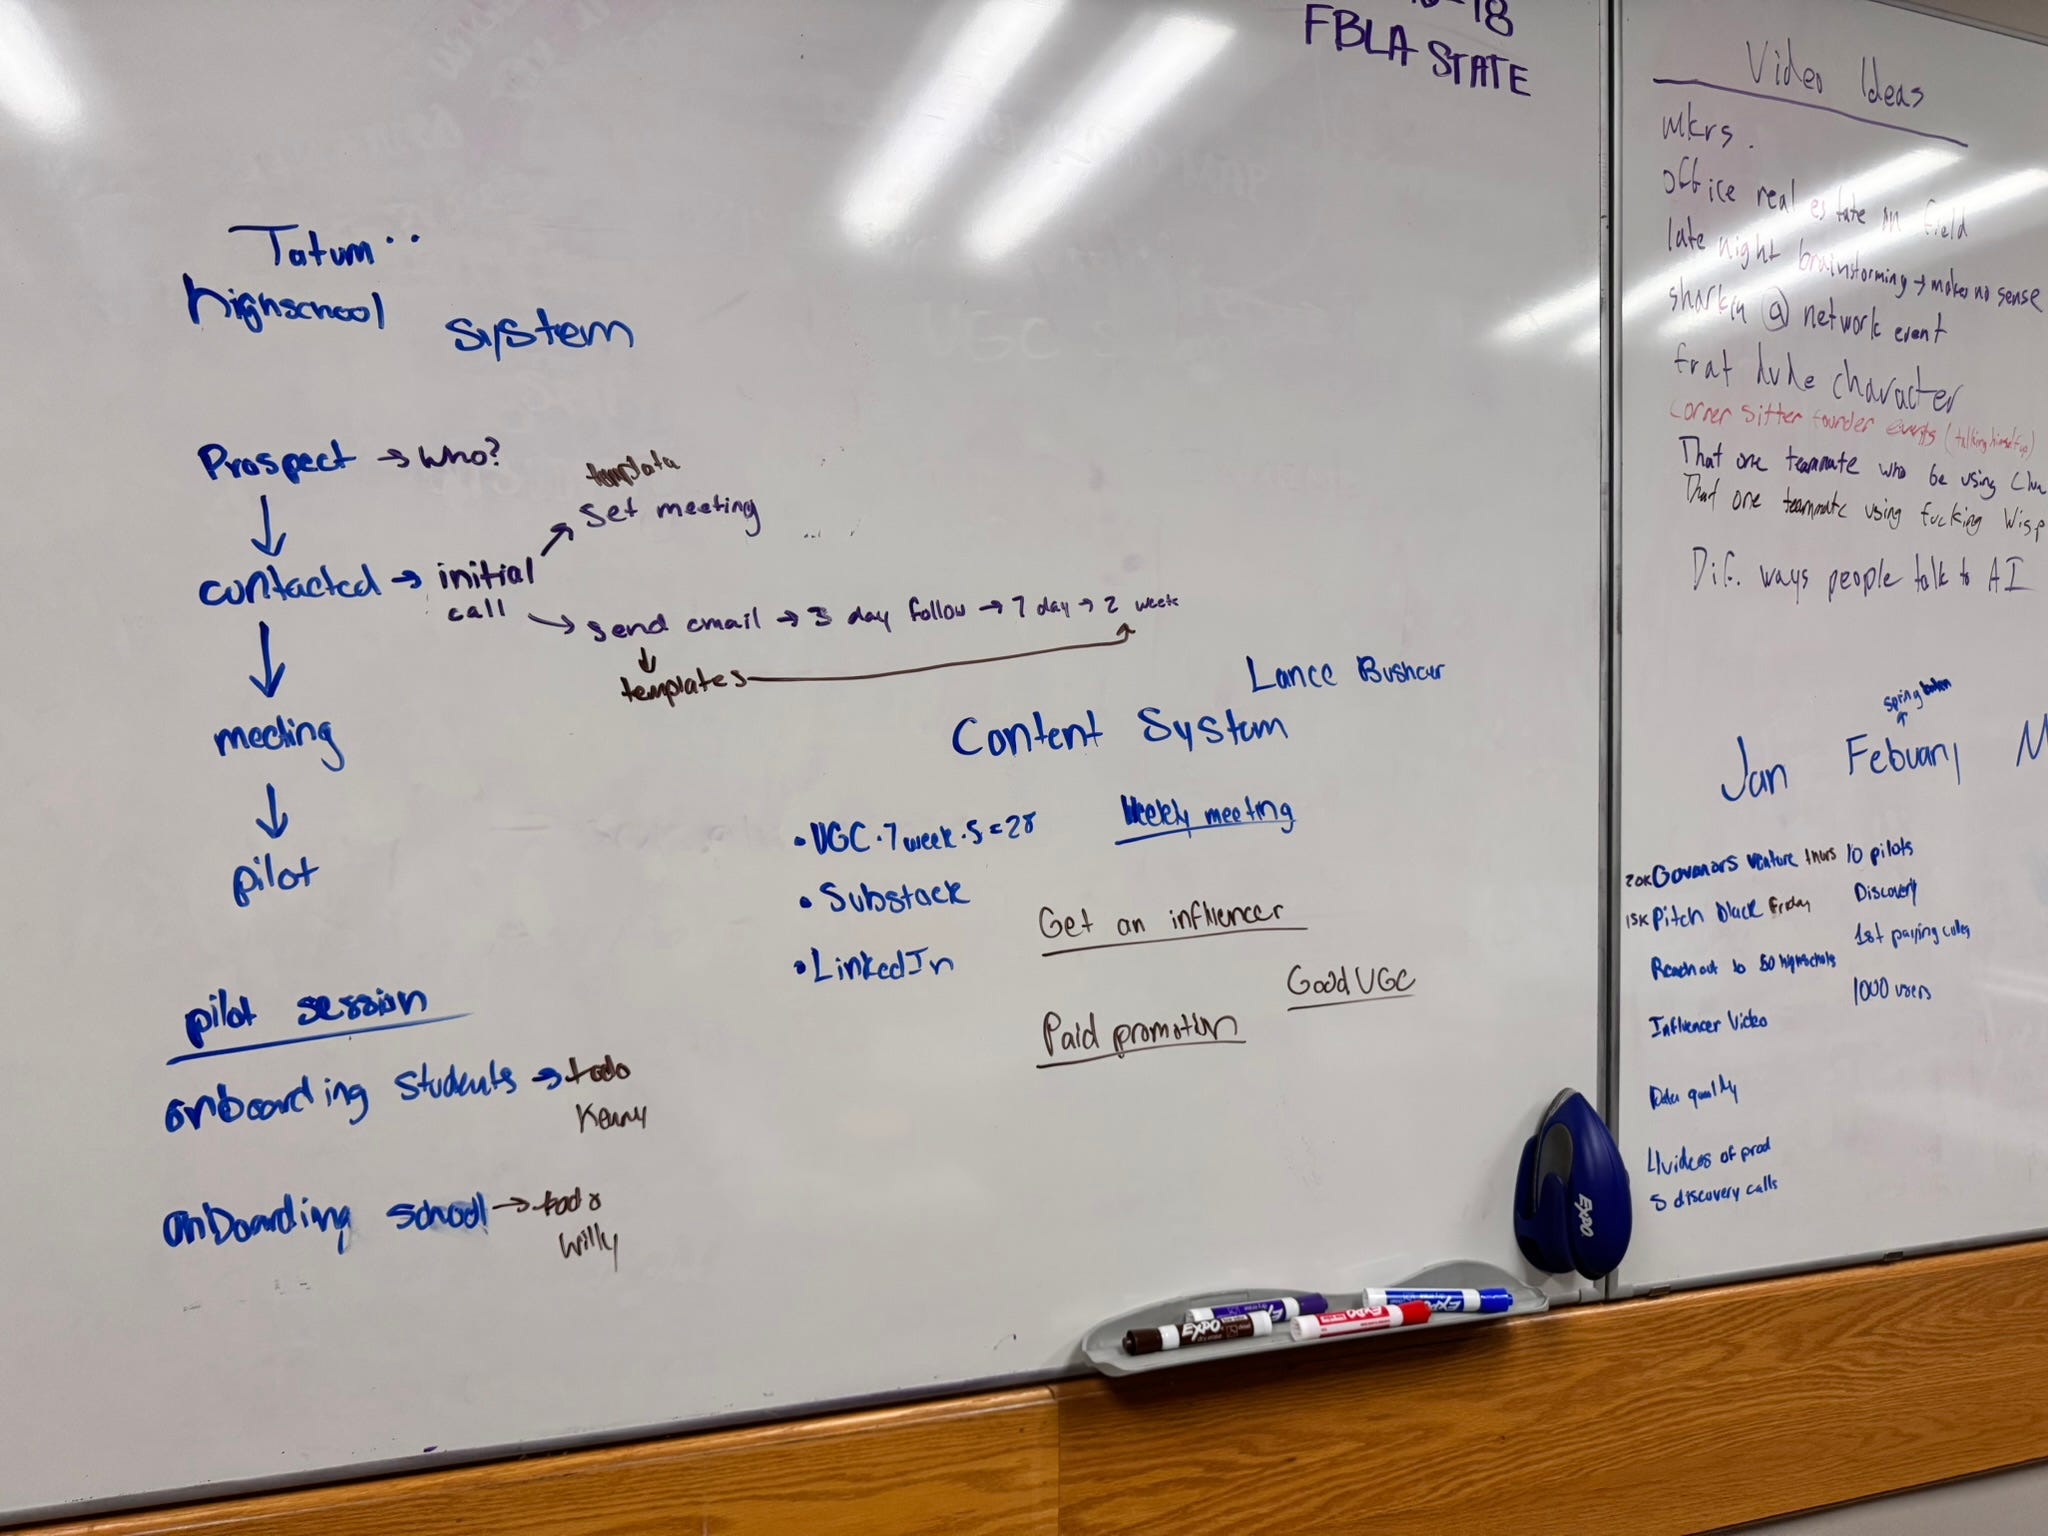 -18
FBLA STATE
Tatum
highschool
System
Prospect → who?
templata
set meeting
contacted → initial
call
send email → 3 day follow → 7 day → 2 week
templates
meeting
pilot
pilot session
onboarding students → todo
Kenny
onboarding school → todo
Willy
Lance
Content System
• UGC · 7 week · 5 = 28
Weekly meeting
• Substack
• LinkedIn
Get an influencer
Good UGC
Paid promotion
Video Ideas
mkrs.
office real estate in field
late night brainstorming → makes no sense
@ network event
frat dude character
corner sitter founder events (talking himself up)
That one teammate who be using
That one teammate using fucking Wisp
Dif. ways people talk to AI
spring
Jan Febuary M
20K Govenors venture thurs
15K Pitch black Friday
Reach out to 50 highschools
Influencer Video
Data quality
4 videos of prod
5 discovery calls
10 pilots
Discovery
1st paying
1000 users
EXPO
EXPO
EXPO
EXPO